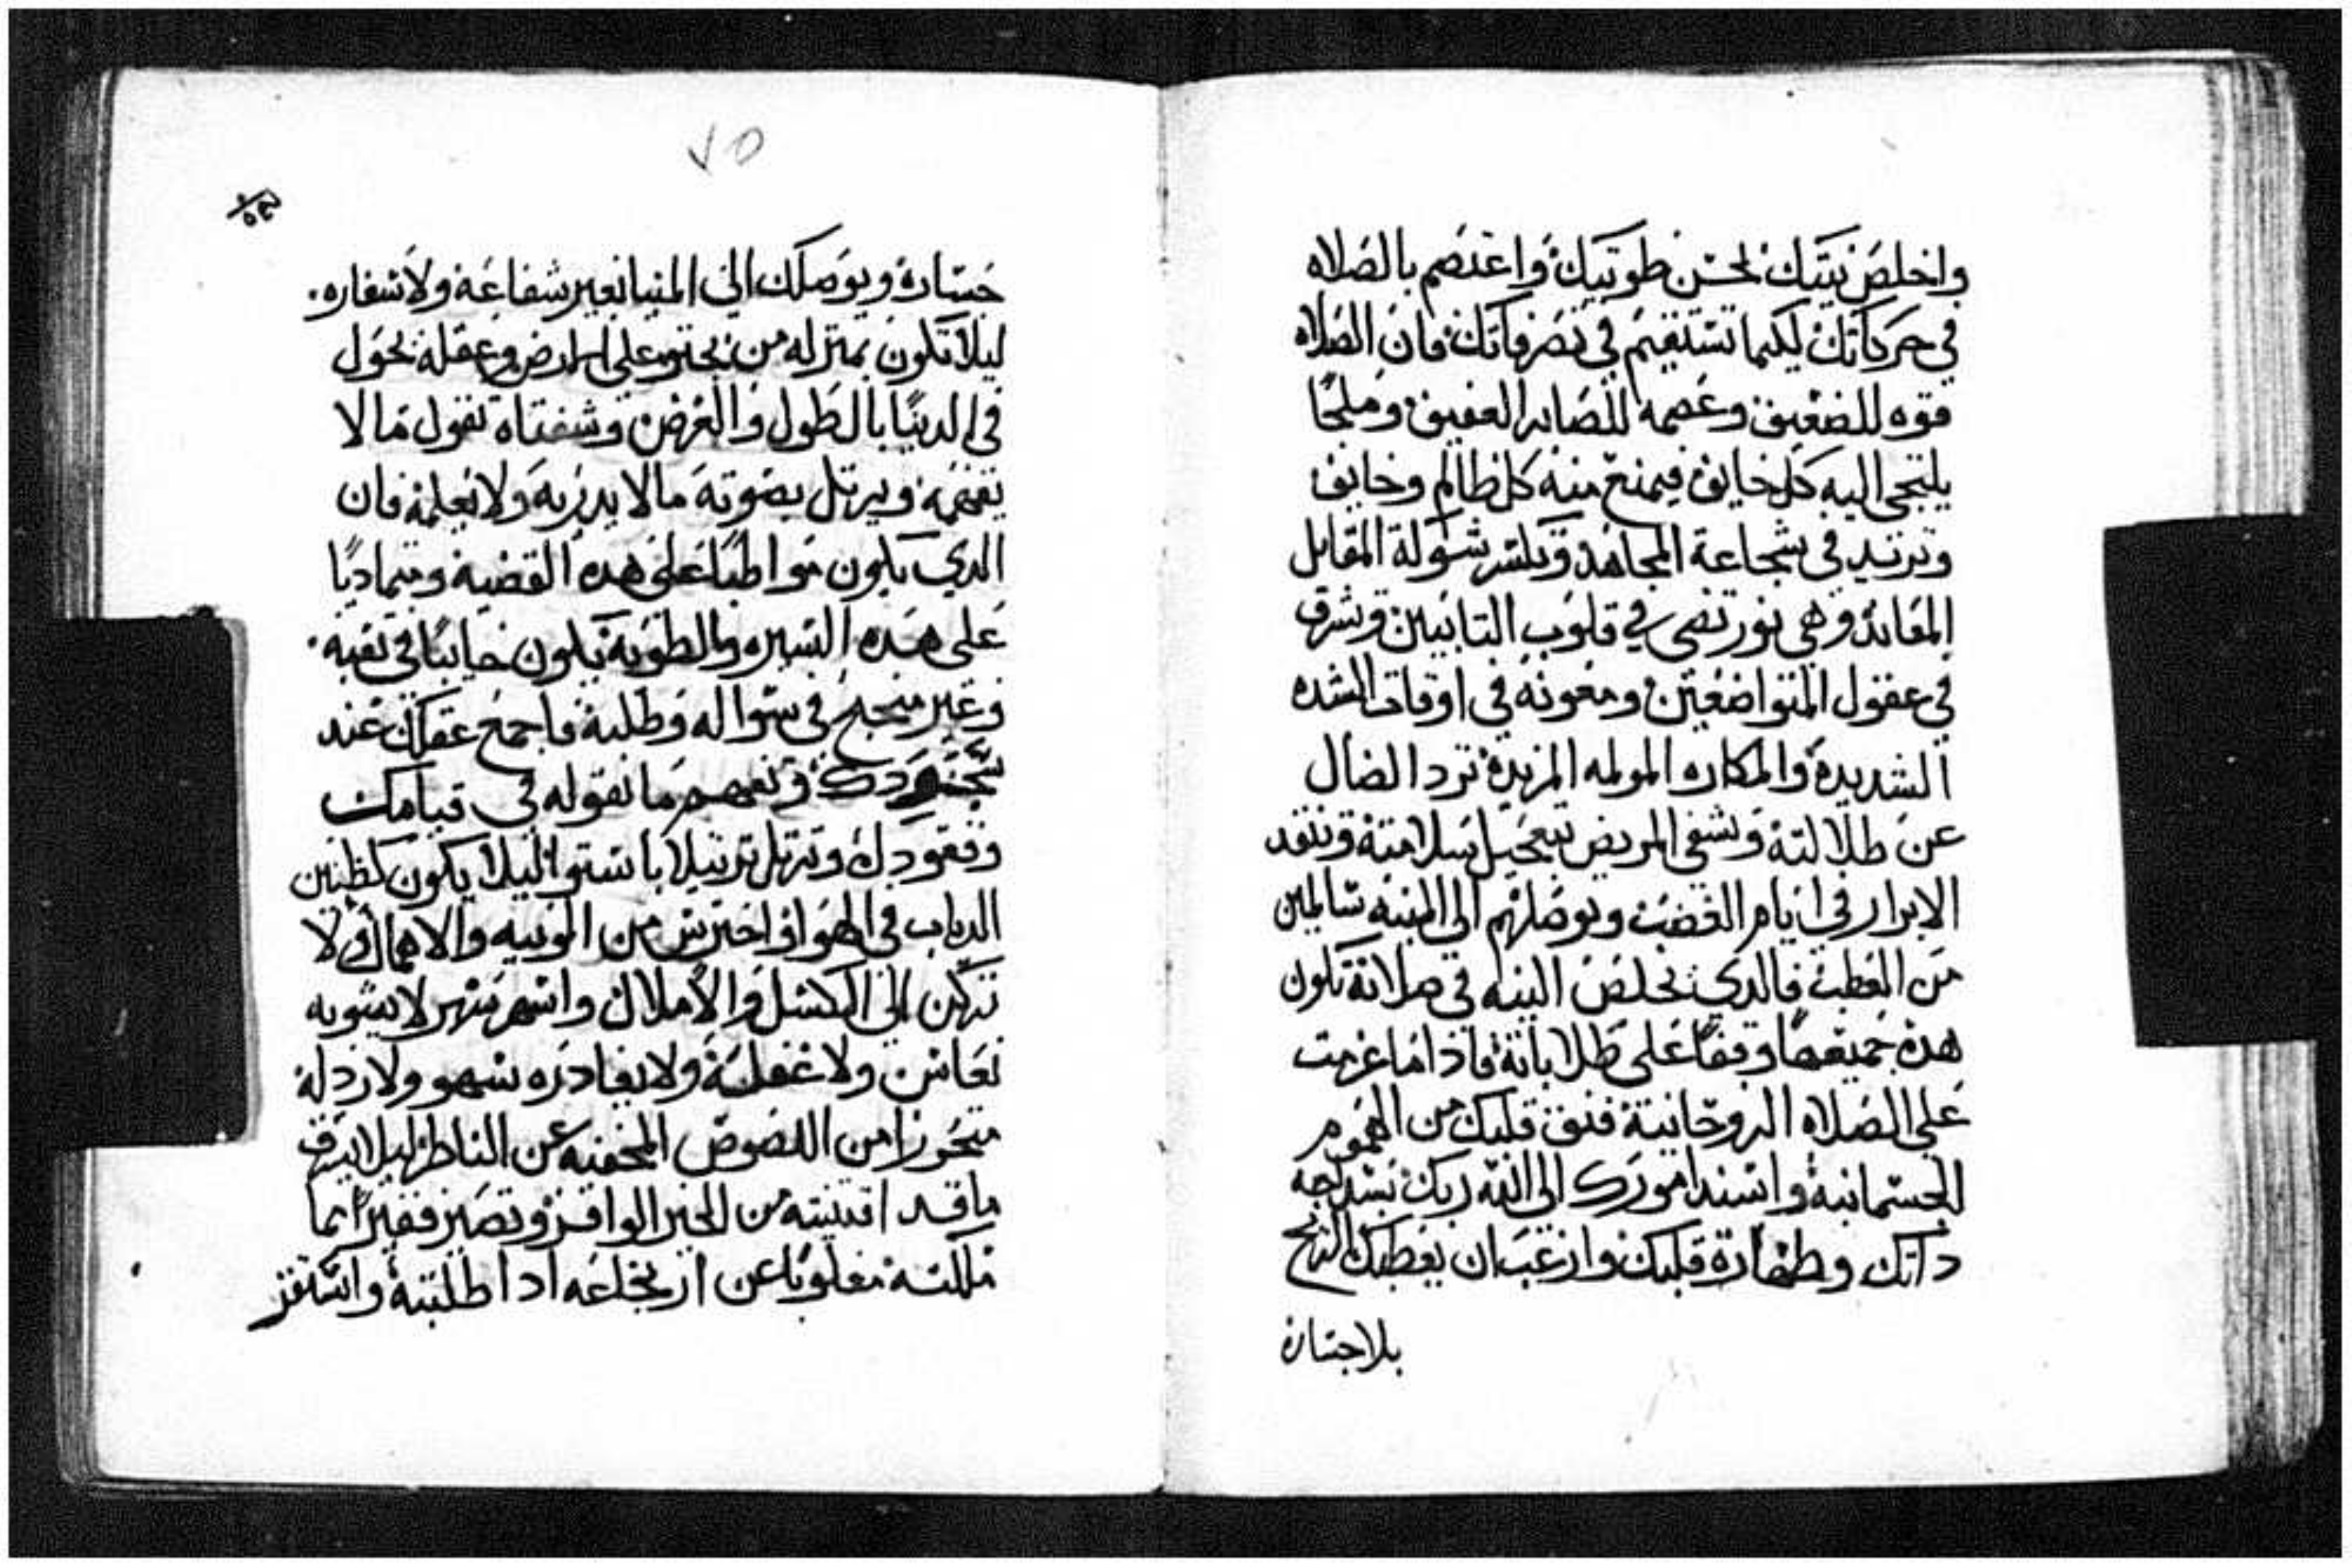 واخلص نيتك لحسن طويتك واعتصم بالصلاه
في حركاتك ليكيما تستقيم في تصرفاتك فان الصلاه
قوه للضعيف وعصمه للصابر العفيف وملجا
يلتجي اليه كل خايف فيمنع منه كل ظالم وخايف
وتزيد في شجاعة المجاهد وتكسر شوكة المقابل
المعاند وهي نور تضي في قلوب التايبين وتشرق
في عقول المتواضعين ومعونه في اوقات الشده
الشديدة والمكاره المولمه المزيدة ترد الضال
عن طلالته وتشفي المريض بتعجيل سلامته وتنقد
الابرار في ايام الغضب وتوصلهم الي المينه سالمين
من العطب فالدي يخلص النيه في صلاته تكون
هده جميعها وقفا على طلاباته فاذا ما عزمت
على الصلاه الروحانية فنق قلبك من الهموم
الجسمانية واسند امورك الى الله ربك بسداجه
داتك وطهارة قلبك وارغب ان يعطيك النجح
بلا جسارة
٧٥
جسارة ويوصلك الي المينا بغير شفاعة ولا سفاره.
ليلا تكون بمنزله من يجتو على الارض وعقله يجول
في الدنيا بالطول والعرض وشفتاه تقول ما لا
يفهمه ويرتل بصوته ما لا يدريه ولا يعلمه فان
الدي يكون مواظبا على هده القضية ومتماديا
على هده السيره والطويه يكون خايبا في تعبه.
وغير منجح في سواله وطلبه فاجمع عقلك عند
سجودك وتفهم ما تقوله في قيامك
وقعودك وترتل ترتيلا باستوا ليلا يكون كطنين
الدباب في الهوا واحترس من الونيه والاهمال ولا
تركن الي الكسل والاملال واسهر سهر لا يشوبه
نعاس ولا غفلة ولا يغادره سهو ولا ردله
متحرزا من اللصوص المخفيه عن الناظر ليلا يسرق
ما قد اقتنيته من الخير الوافر وتصير فقيرا مما
ملكته مغلوبا عن ارتجاعه ادا طلبته واستقز